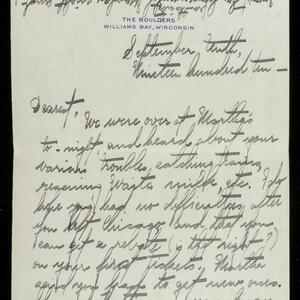 THE BOULDERS
WILLIAMS BAY, WISCONSIN
September, tenth,
Nineteen hundred ten —
Dearest,
We were over at Martha's
to-night, and heard about your
various troubles, catching trains,
rescuing Waite's mile, etc. I do
hope you had no difficulties after
you left Chicago, and that you
can get a rebate (is that right?)
on your first tickets. Martha
said you have to get new ones.